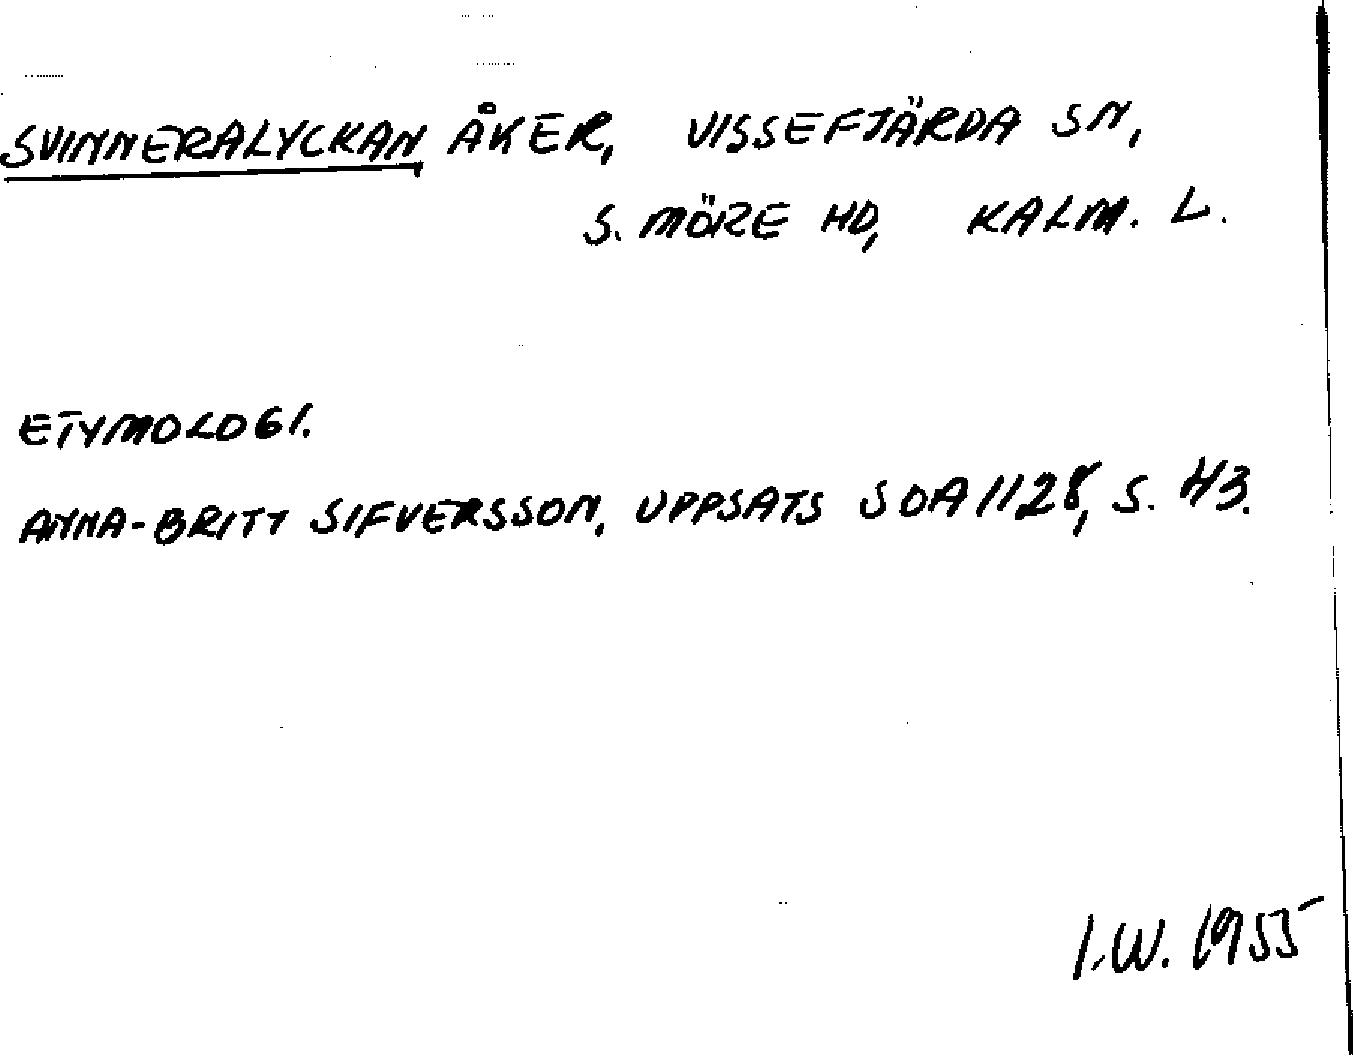 SVINNERALYCKAN ÅKER, VISSEFJÄRDA SN,
S. MÖRE HD, KALM. L.
ETYMOLOGI.
ANNA-BRITT SIFVERSSON, UPPSATS SOA 1128, S. 43.
I.W. 1955